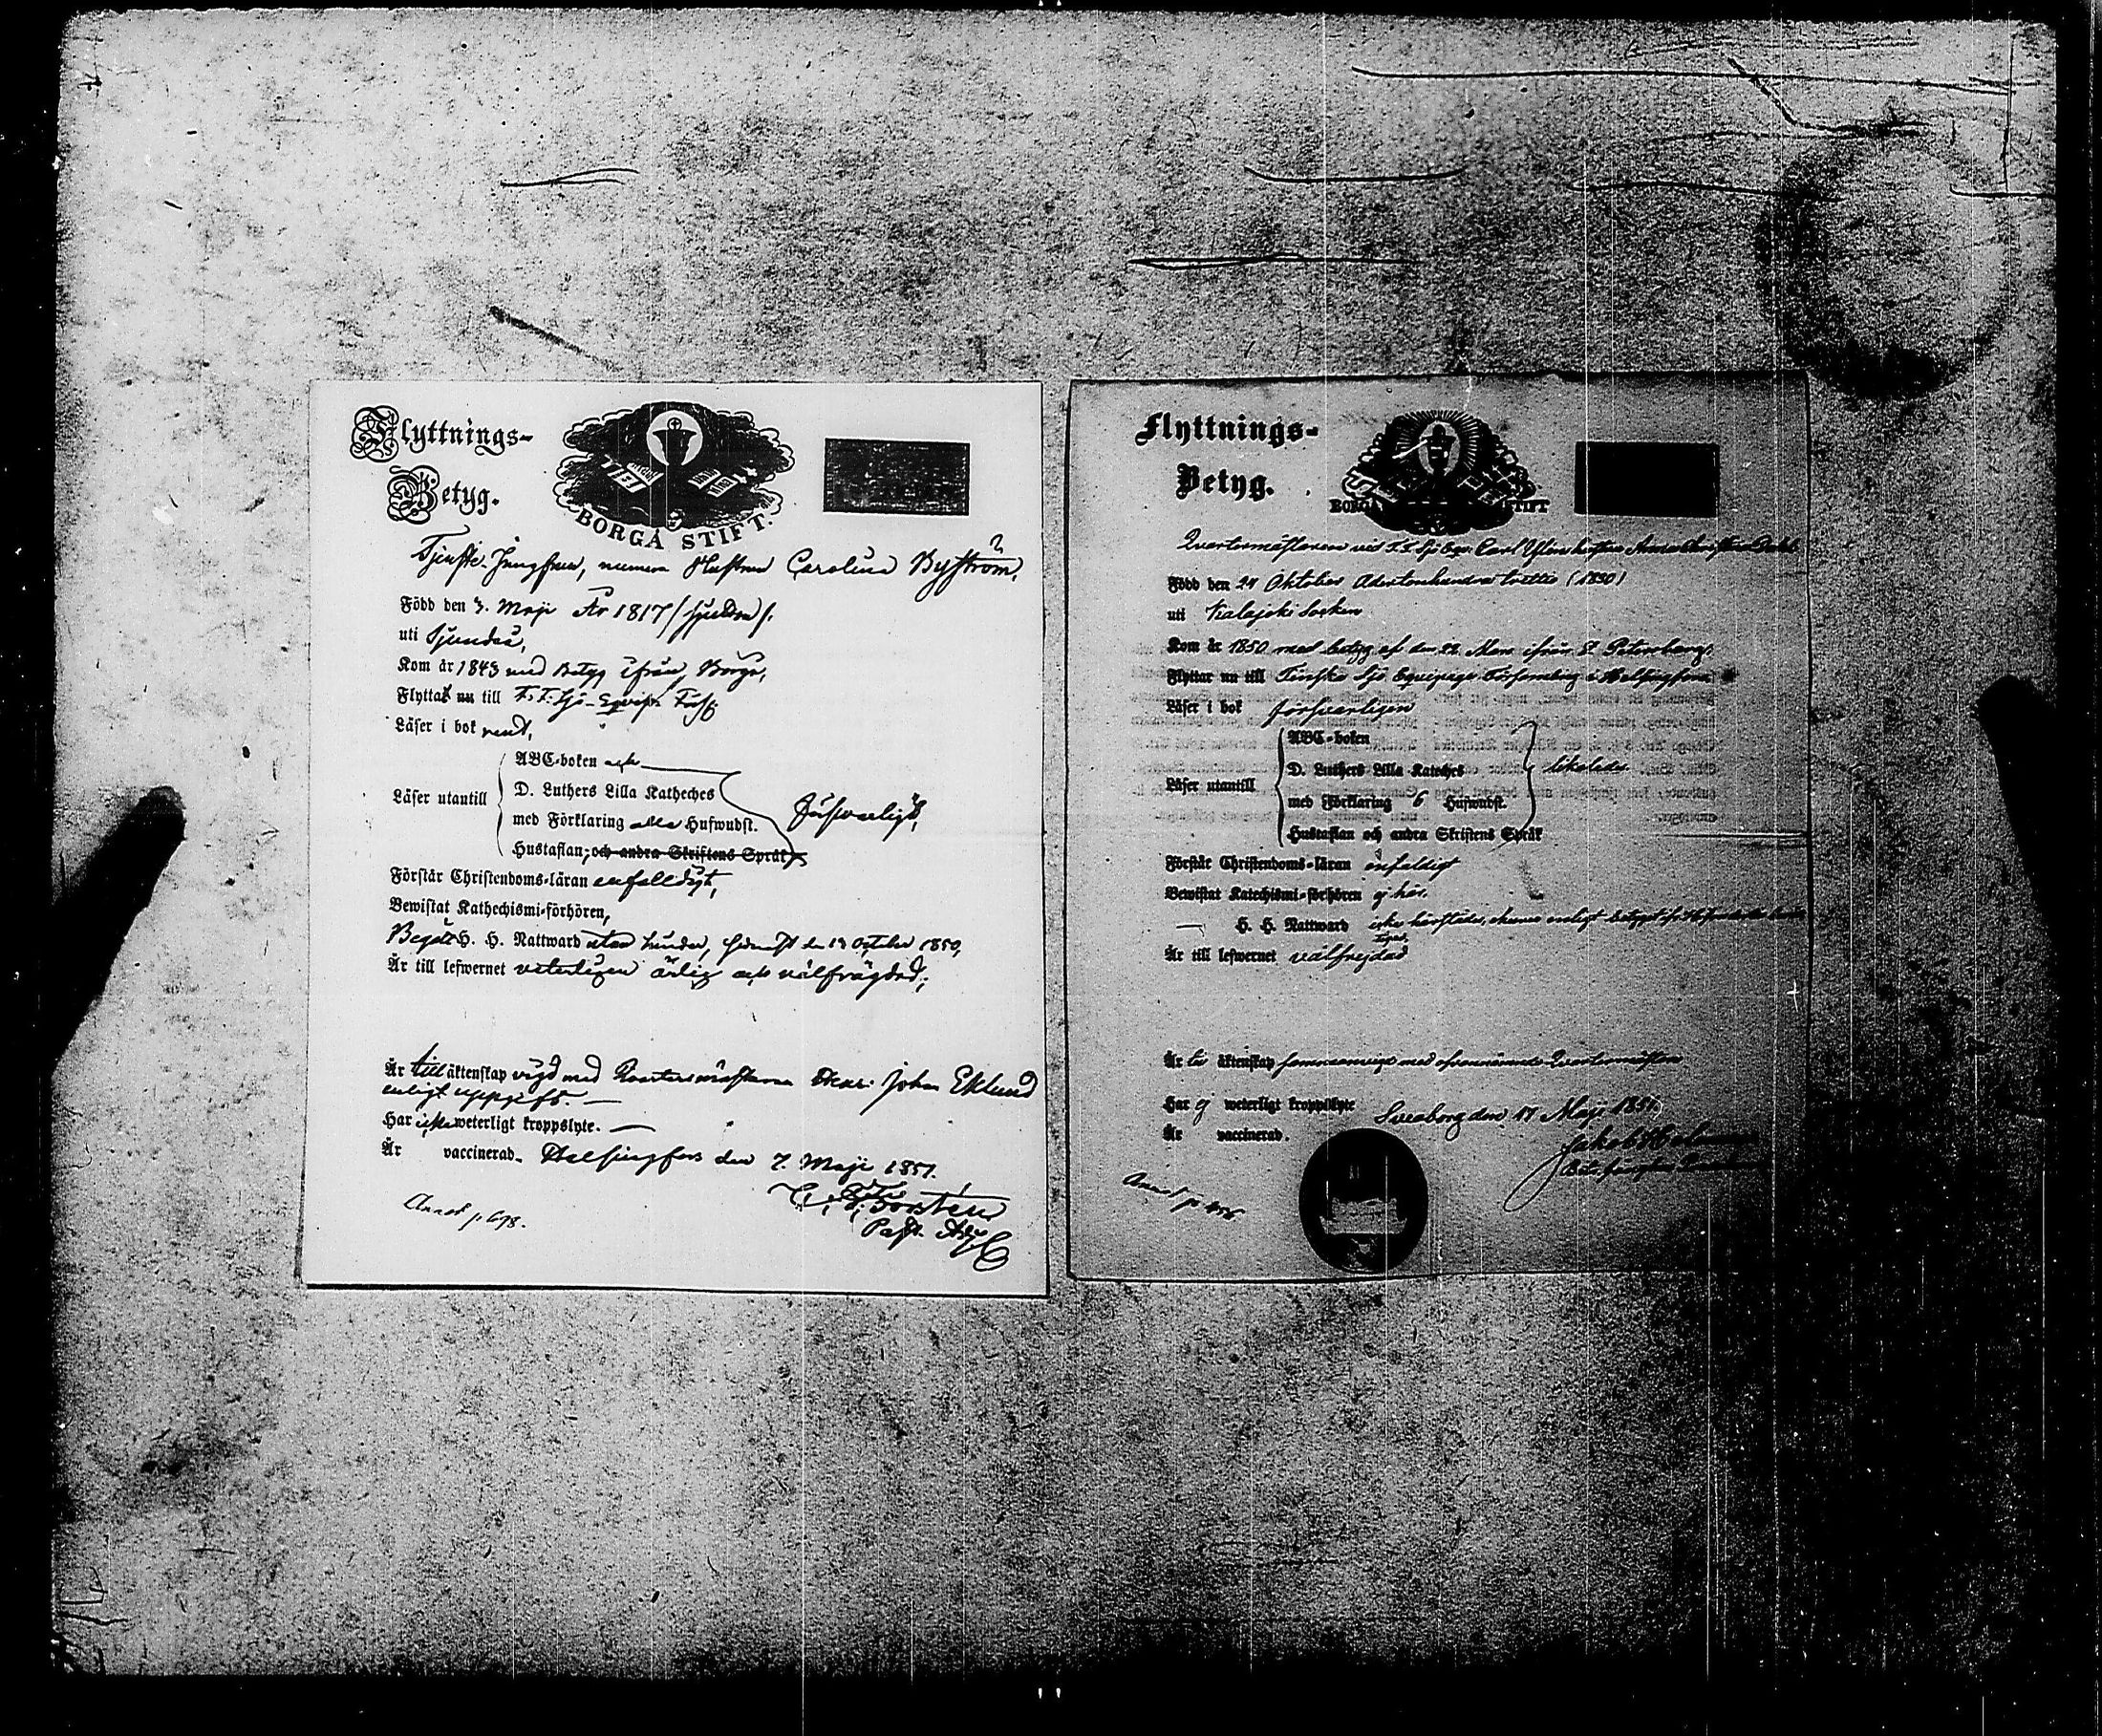 Flyttnings-
Betyg.
BORGÅ STIFT.
Tjenste-Jungfrun, numera Hustrun Carolina Byström,
Född den 3. Maji År 1817 /sjutton/.
uti Sjundeå,
Kom år 1843 med Betyg ifrån Borgå,
Flyttat nu till F. F. Sjö-Equip. Förs.
Läser i bok rent,
ABC-boken och
Läser utantill
D. Luthers Lilla Katheches
med Förklaring alla Hufwudst.
försvarligt,
Hustaflan, och andra Skriftens Språk
Förstår Christendoms-läran enfalldigt,
Bewistat Kathechismi-förhören,
Begått H. H. Nattward utan hinder, senast den 13 October 1850,
Är till lefwernet veterligen ärlig och välfrägdad;
Är till äktenskap vigd med Quartersmästaren Johan Eklund
enligt uppgift.
Har icke weterligt kroppslyte.
Är vaccinerad. Helsingfors den 7. Maji 1851.
Forstén
Past. Adj.
Annot. p. 698.
Flyttnings-
Betyg.
BORGÅ STIFT
Quartermästaren vid F. F. Sjö Eqv. Carl hustru Anna Christina
Född den 24 Oktober Adertonhundra trettio (1830)
uti Kalajoki Socken
Kom år 1850 med betyg af den 22 Mars ifrån St Petersburg.
Flyttar nu till Finska Sjö Equipage Församling i Helsingfors
Läser i bok försvarligen
ABC-boken
Läser utantill
D. Luthers Lilla Kateches
likaledes
med Förklaring 6 Hufwudst.
Hustaflan och andra Skriftens Språk
Förstår Christendoms-läran enfaldigt
Bewistat Katechismi-förhören ej här.
H. H. Nattward icke härstädes, enligt betyget
Är till lefwernet välfrejdad
Är i äktenskap sammanvigd med ofvannämnde Quartermästare
Har ej weterligt kroppslyte
Sveaborg den 17 Maji 1851.
Är vaccinerad.
Jakob
Annot. p.